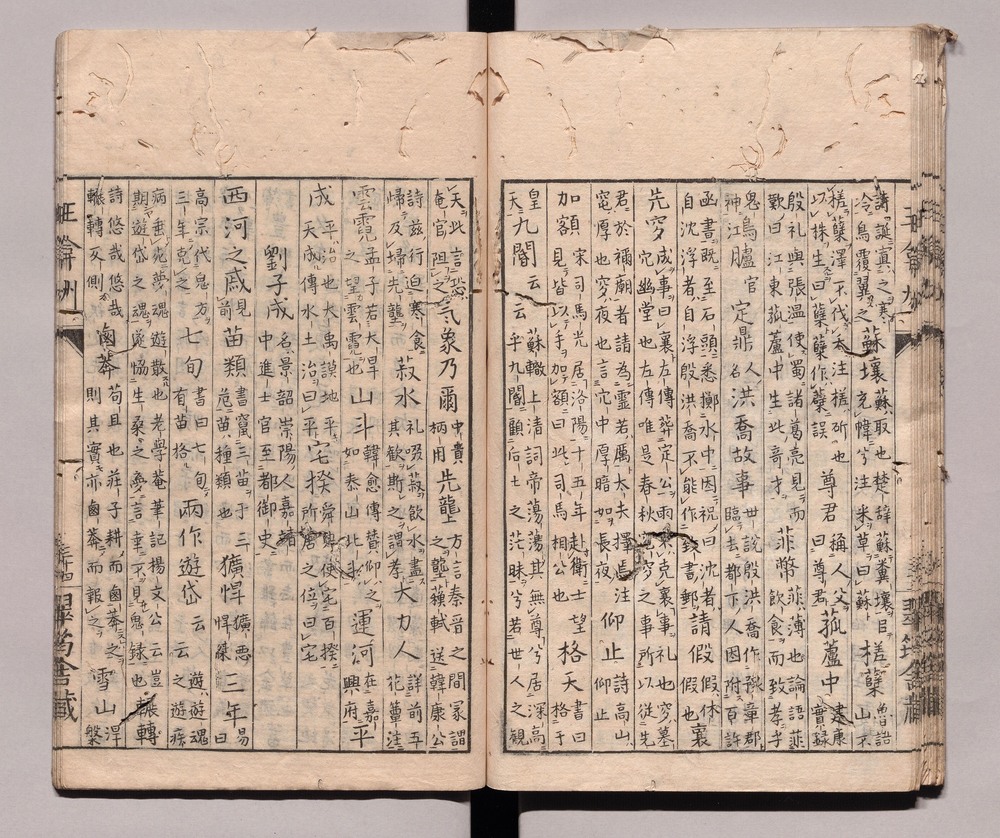 詩誕寘之寒
冷鳥覆翼之
蘇壤
蘇取也楚辭蘇糞壤目
充幃兮注米草曰蘇
槎蘖
魯語
山不
槎蘖澤不伐夭注槎斫也
以株生曰蘖蘖作蘖誤
尊君
稱人父
曰尊君
菰蘆中
建康
實録
殷礼與張温使蜀諸葛亮見而
歎曰江東菰蘆中生此奇才
菲幣
菲薄也論語菲
飲食而致孝乎
鬼
神
洪喬故事
世說殷洪喬作豫章郡
臨去都下人因附百許
函書既至石頭悉擲水中因祝曰沈者
自沈浮者自浮殷洪喬不能作致書郵
請假
假休
假也
襄
先穸
成事曰襄左傳葬定公雨不克襄事礼也穸墓
穴幽堂也左傳唯是春秋窀穸之事所以從先
君於禰廟者請為靈若厲大夫擇焉注
窀厚也穸夜也言穴中厚暗如長夜
仰止
詩高山
仰止
加額
宋司馬光居洛陽十五年赴衛士望
見皆以手加額曰此司馬相公也
格天
書曰
格于
皇
天
九閽云云
蘇轍上清詞帝蕩蕩其無尊兮居深高
乎九閽顧后土之茫昧兮若世人之觀
天此言忽
奄官阻之
氣象乃爾
中貴
柄用
先壟
方言秦晉之間冢謂
之壟蘓軾送韓康公
詩兹行迫寒食
歸及埽先壟
菽水
礼啜菽飲水盡
其歡斯之謂孝
大力人
詳前五
花簟注
雲霓
孟子若大旱
之望雲霓也
山斗
韓愈傳贊仰之
如泰山北斗
運河
在嘉
興府
平
成
平治也大禹謨地平
天成傳水土治曰平
宅揆
舜典使宅百揆
所居之位曰宅
劉子成
名景韶崇陽人嘉靖
中進士官至都御史
西河之慼
見
前
苗類
書竄三苗于三
危苗種類也
獷悍
獷惡
悍桀
三年
易
曰
高宗伐鬼方
三年克之
七旬
書曰七旬
有苗格
兩作遊岱云云
遊遊魂
之遊疾
病垂死夢魂遊散也老學菴筆記楊文公云豈
期遊岱之魂遂恊生桑之夢言幸不見鬼録也
輾轉
詩悠哉悠哉
輾轉反側
鹵莽
苟且也莊子耕而鹵莽之
則其實亦鹵莽而報之
雪山